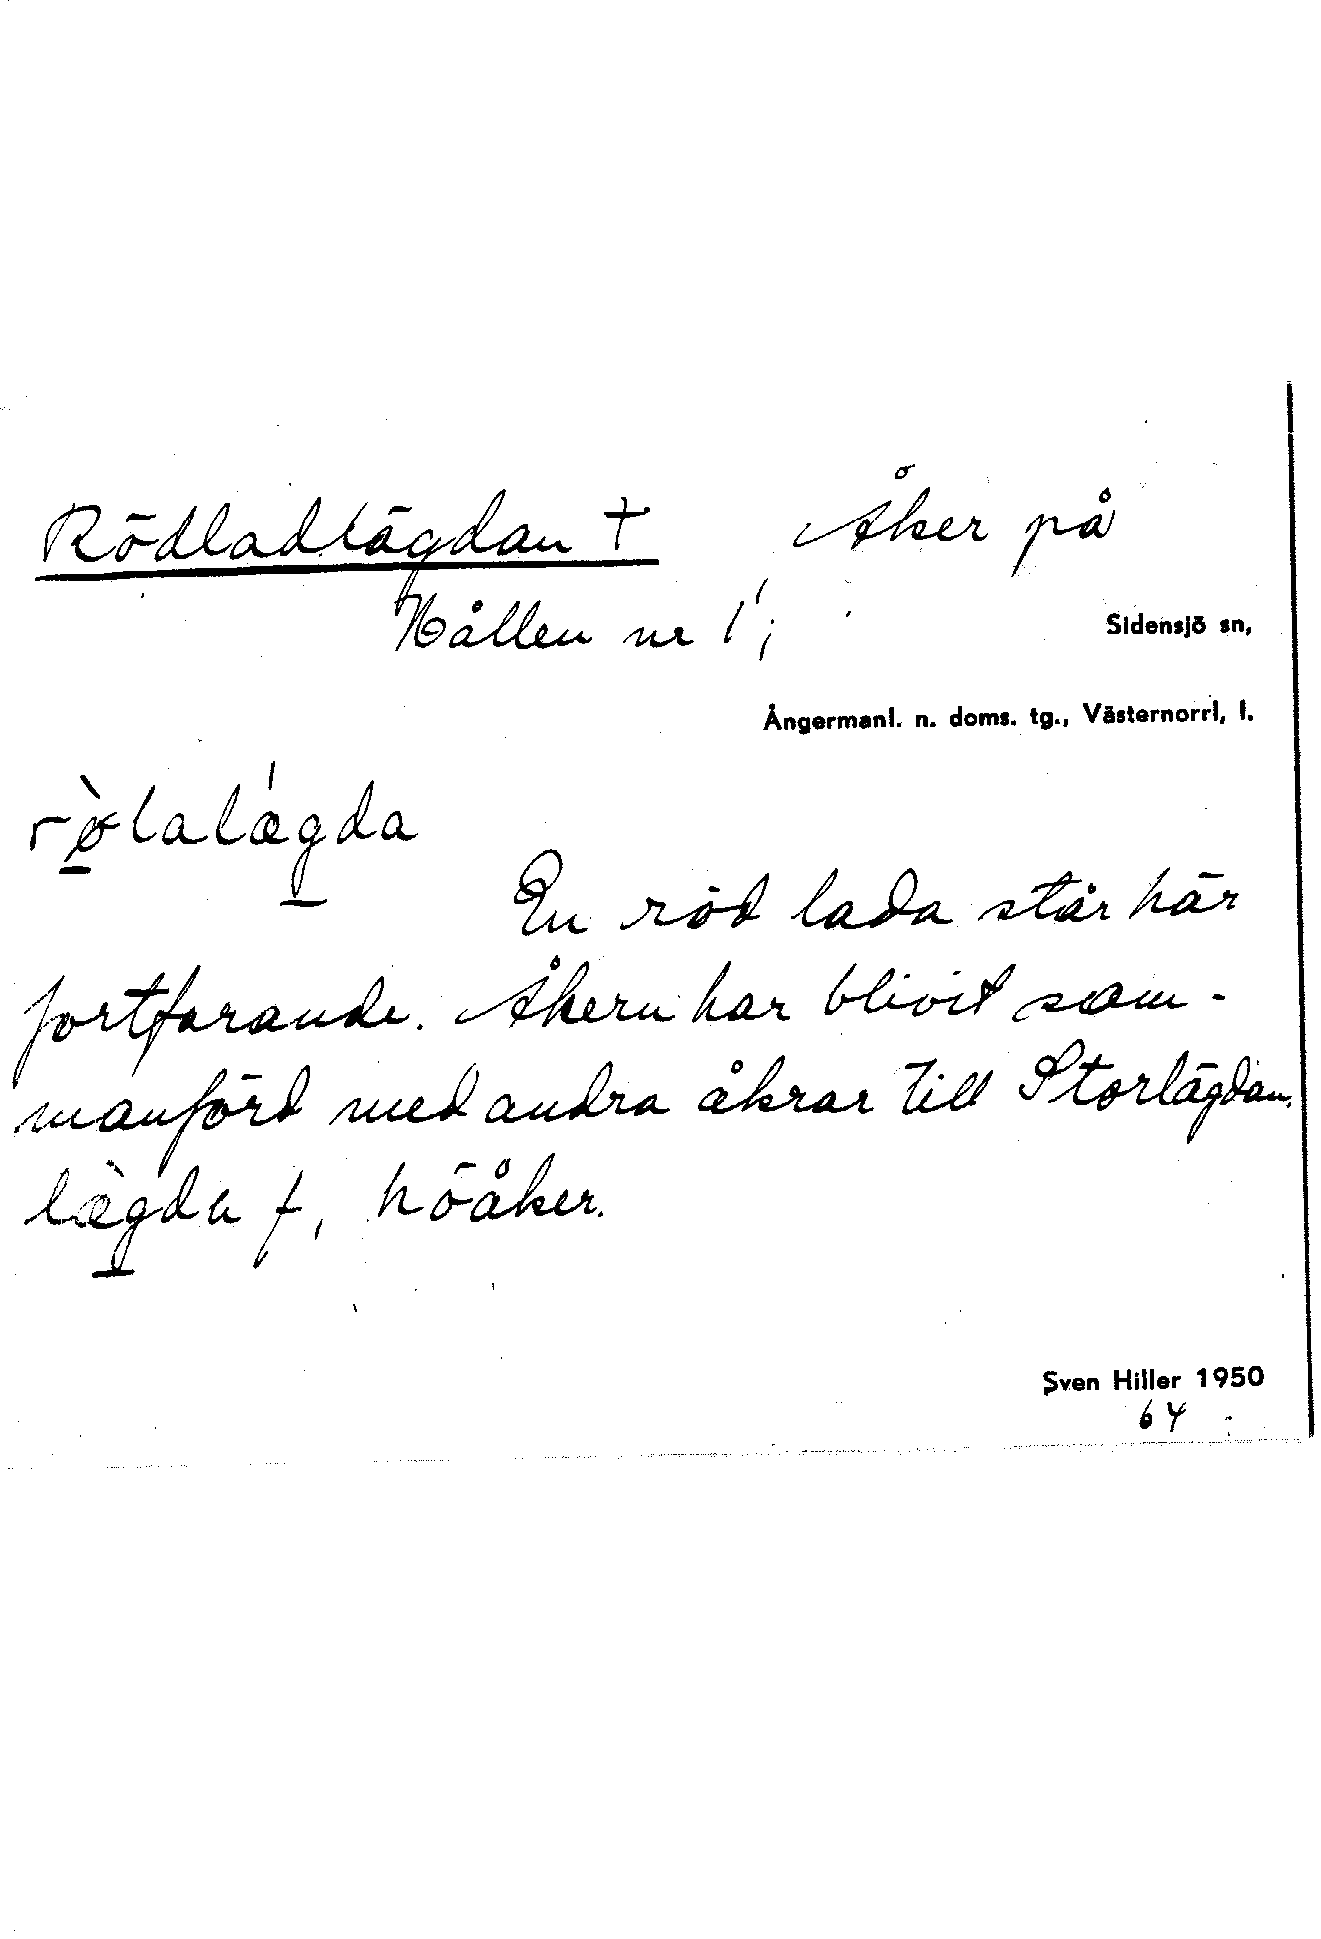 Rödladlägdan † Åker på
Hållen nr 1';
Sidensjö sn,
Ångermanl. n. doms. tg., Västernorrl, l.
rø̀lalǽgda
En röd lada står här
fortfarande. Åkern har blivit sam-
manförd med andra åkrar till Storlägdan.
læ̀gda f, höåker.
Sven Hiller 1950
64